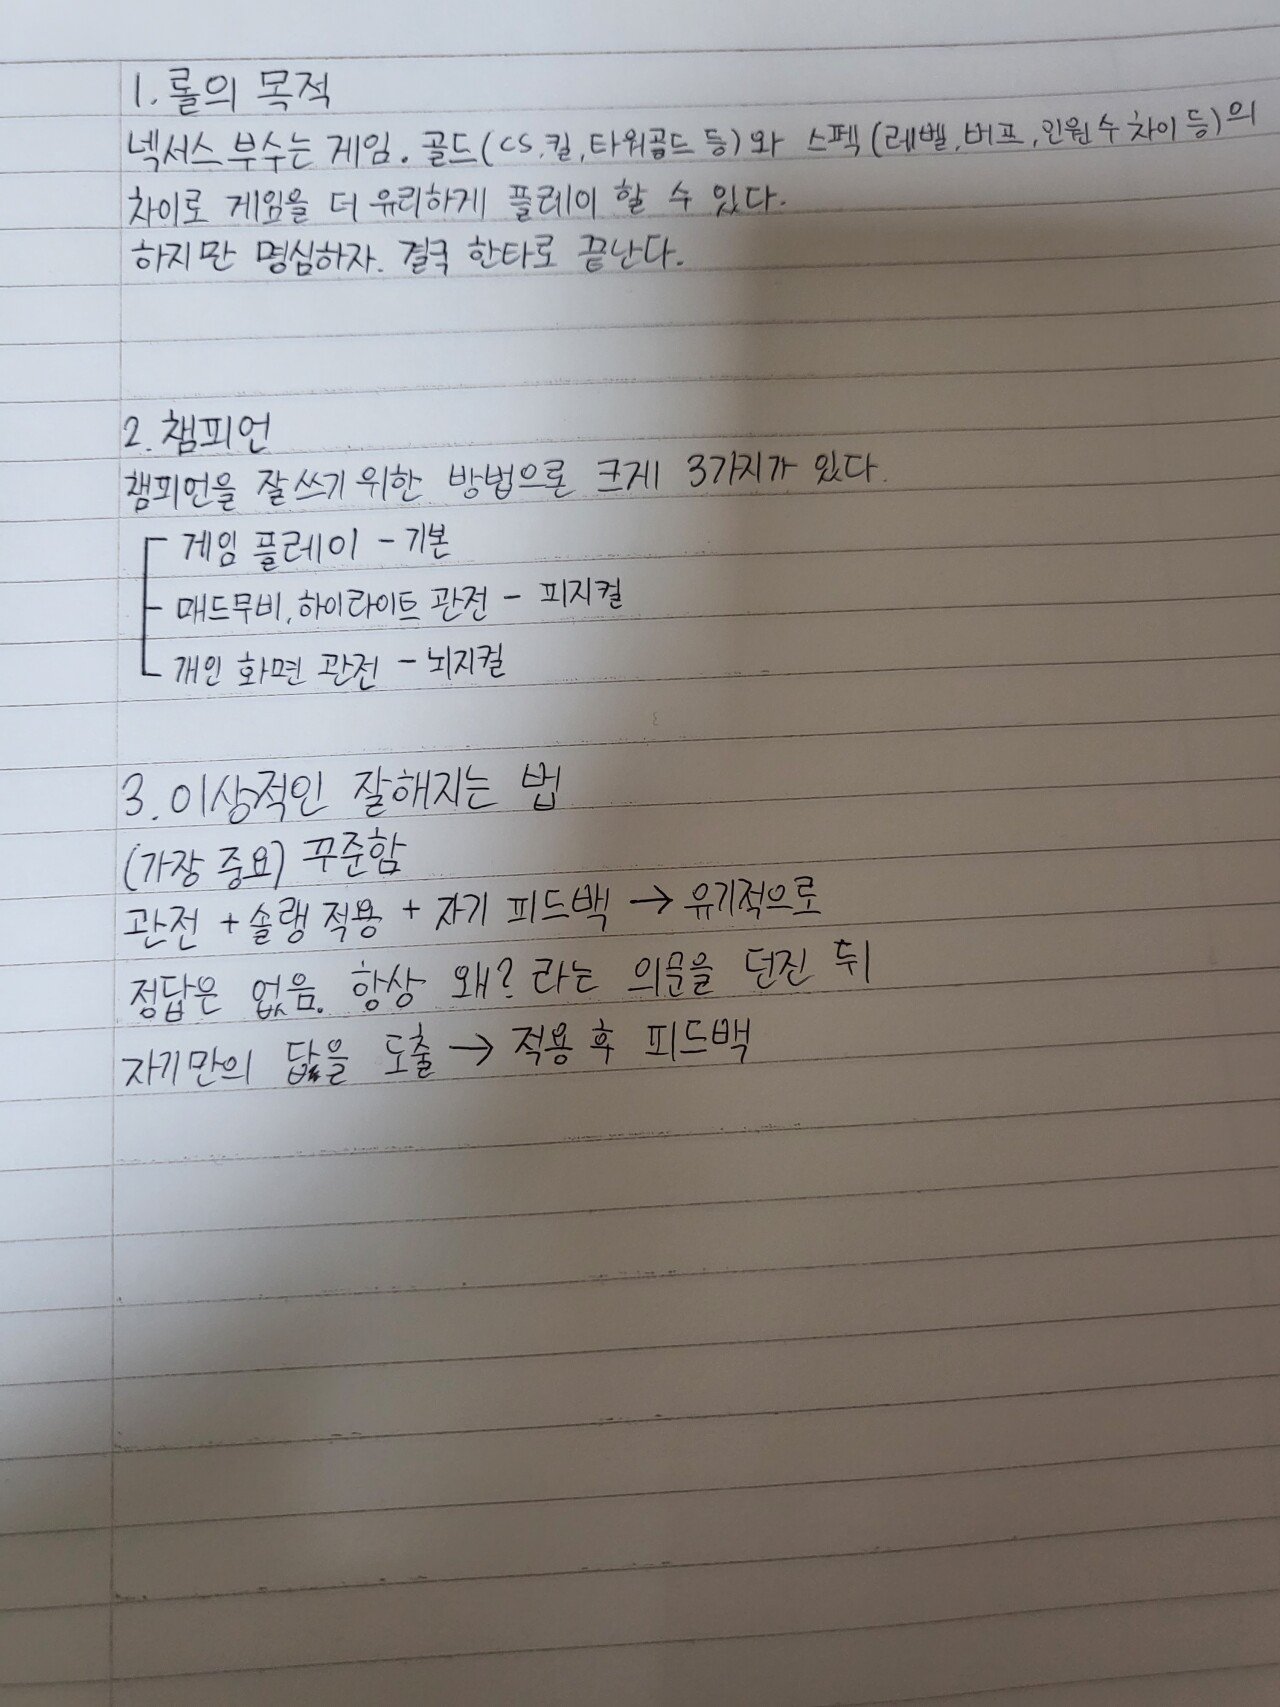 1. 롤의 목적
넥서스 부수는 게임. 골드(CS,킬,타워골드 등)와 스펙(레벨,버프,인원수차이등)의
차이로 게임을 더 유리하게 플레이 할 수 있다.
하지만 명심하자. 결국 한타로 끝난다.
2. 챔피언
챔피언을 잘쓰기 위한 방법으론 크게 3가지가 있다.
게임 플레이 - 기본
매드무비, 하이라이트 관전 - 피지컬
개인 화면 관전 - 뇌지컬
3. 이상적인 잘해지는 법
(가장 중요) 꾸준함
관전 + 솔랭 적용 + 자기 피드백 → 유기적으로
정답은 없음. 항상 왜? 라는 의문을 던진 뒤
자기만의 답을 도출 → 적용 후 피드백